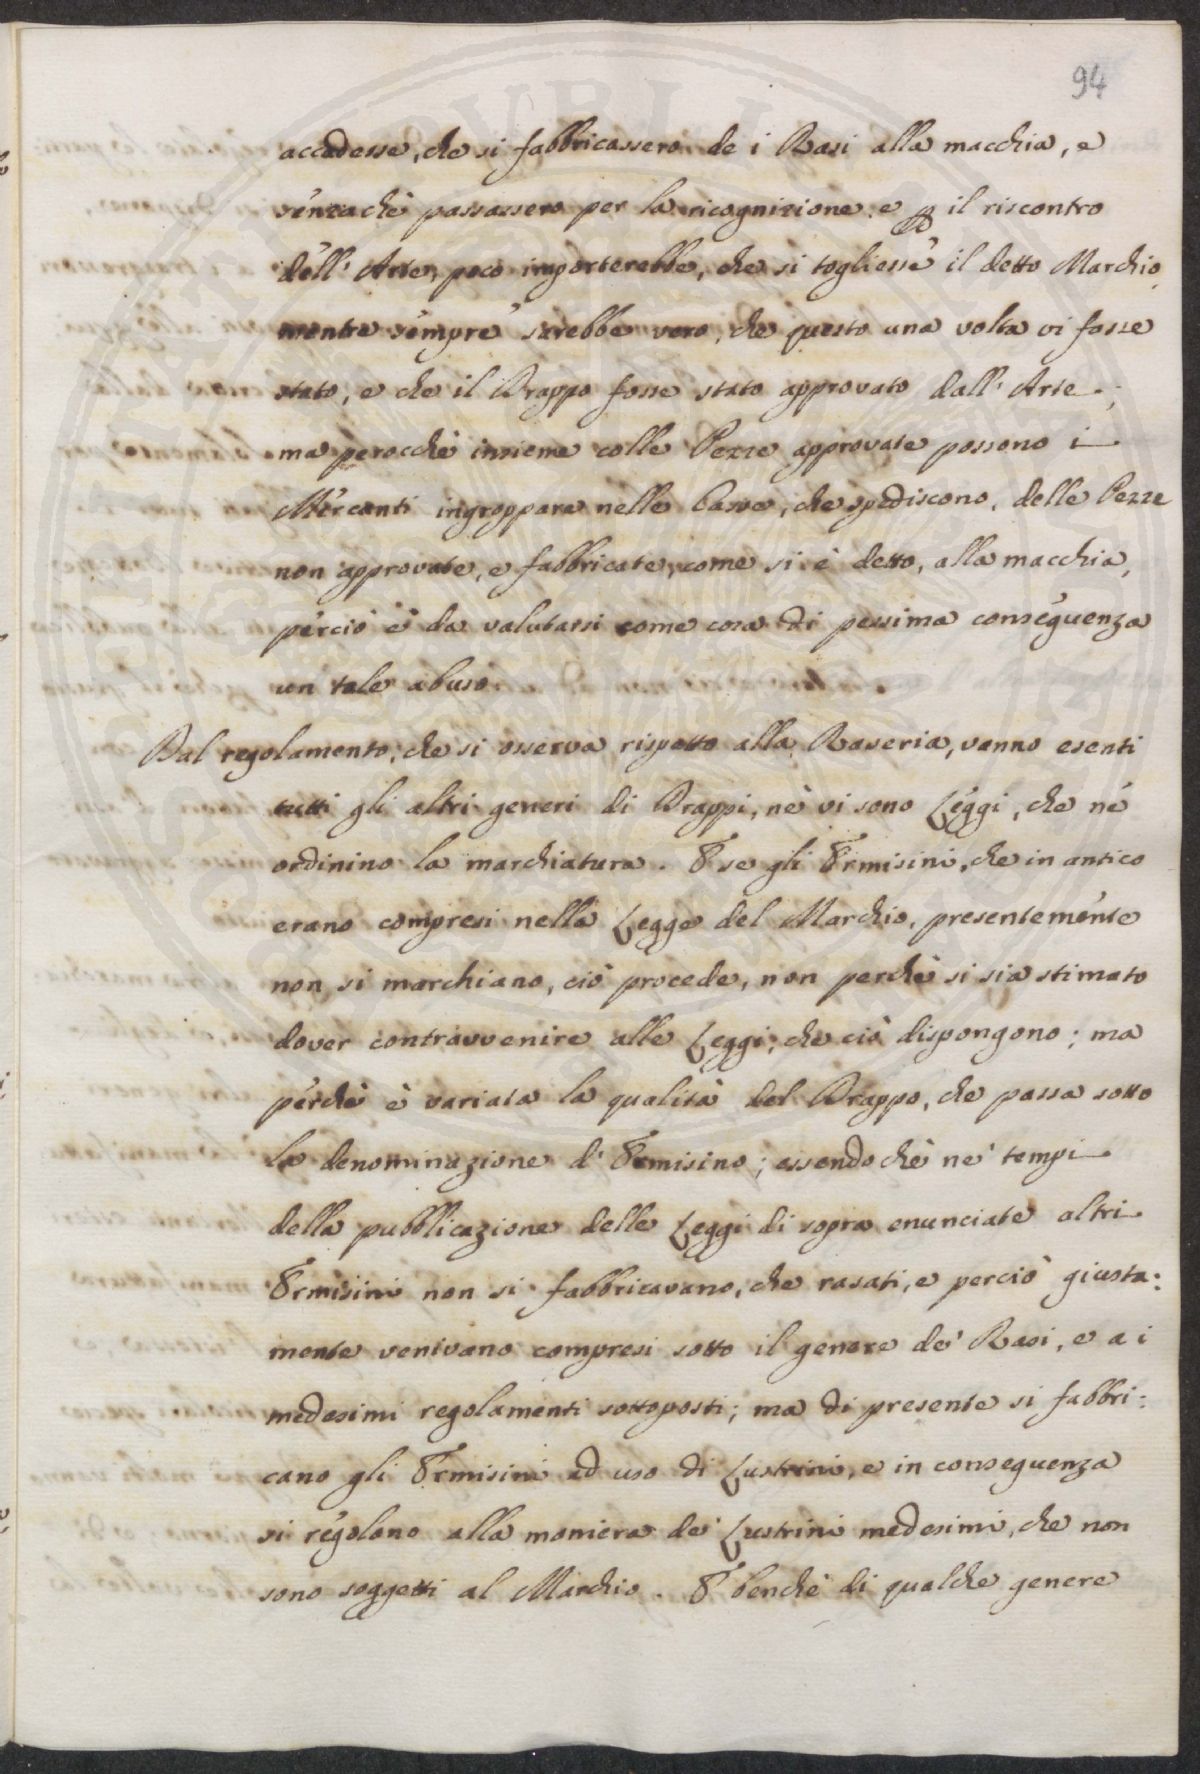 94
accadesse, che si fabbricassero de i Rasi alla macchia, e
senzachè passassero per la ricognizione, e p il riscontro
dell' Arte, poco importerebbe, che si togliesse il detto Marchio,
mentre sempre sarebbe vero, che questo una volta vi fosse
stato, e che il Drappo fosse stato approvato dall' Arte;
ma perocchè insieme colle Pezze approvate possono i
Mercanti ingroppare nelle Casse, che spediscono, delle Pezze
non approvate, e fabbricate, come si è detto, alla macchia,
perciò è da valutarsi come cosa di pessima conseguenza
un tale abuso.
Dal regolamento, che si osserva rispetto alla Raseria, vanno esenti
tutti gli altri generi di Drappi, nè vi sono Leggi, che nè
ordinino la marchiatura. E se gli Ermisini, che in antico
erano compresi nella Legge del Marchio, presentemente
non si marchiano, ciò procede, non perchè si sia stimato
dover contravvenire alle Leggi, che ciò dispongono; ma
perchè è variata la qualità del Drappo, che passa sotto
la denominazione d' Ermisino; essendochè ne' tempi
della pubblicazione delle Leggi di sopra enunciate altri
Ermisini non si fabbricavano, che rasati, e perciò giusta:
mente venivano compresi sotto il genere de' Rasi, e a i
medesimi regolamenti sottoposti; ma di presente si fabbri:
cano gli Ermisini ad uso di Lustrini, e in conseguenza
si regolano alla maniera de' Lustrini medesimi, che non
sono soggetti al Marchio. E benchè di qualche genere